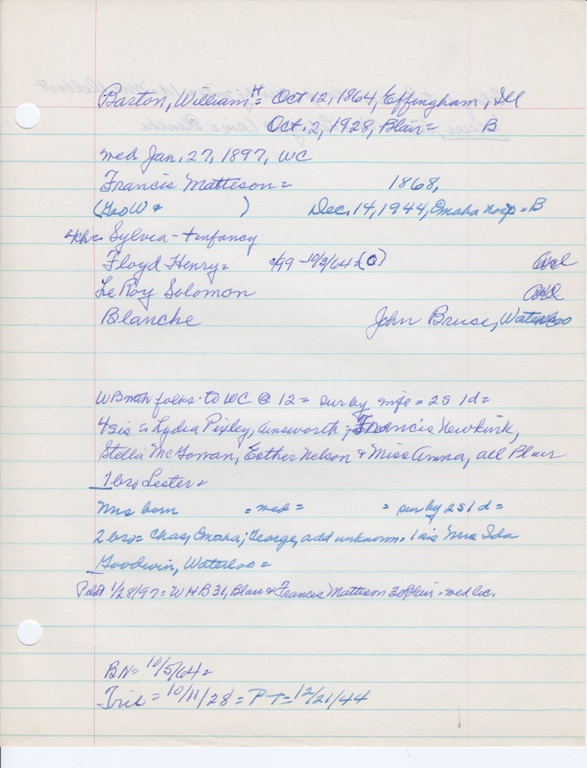 Barton, William H = Oct 12, 1864, Effingham, Ill
Oct. 2, 1928, Blair = B
med Jan. 27, 1897, WC
Francis Matteson = 1868,
(Geo W & ) Dec. 14, 1944, Omaha hosp = B
4ch = Sylvia - + infancy
Floyd Henry = 4/99 - 10/2/64 (O)
LeRoy Solomon
Blanche John Bruce, Waterloo
WB with folks to WC @ 12 = sur by wife = 2S 1d =
4 sis = Lydia Pixley, Ainsworth; Francis Newkirk,
Stella McGowan, Esther Nelson & Miss Anna, all Blair
1 bro Lester =
Mrs born = med = = sur by 2S 1 d =
2 bro = Chas, Omaha; George, add unknown. 1 sis Mrs Ida
Goodwin, Waterloo =
Pilot 1/28/97 = W H B 31, Blair & Francis Mattison 20 Blair - med lic.
BN = 10/5/64 =
Trib = 10/11/28 = P T = 12/21/44